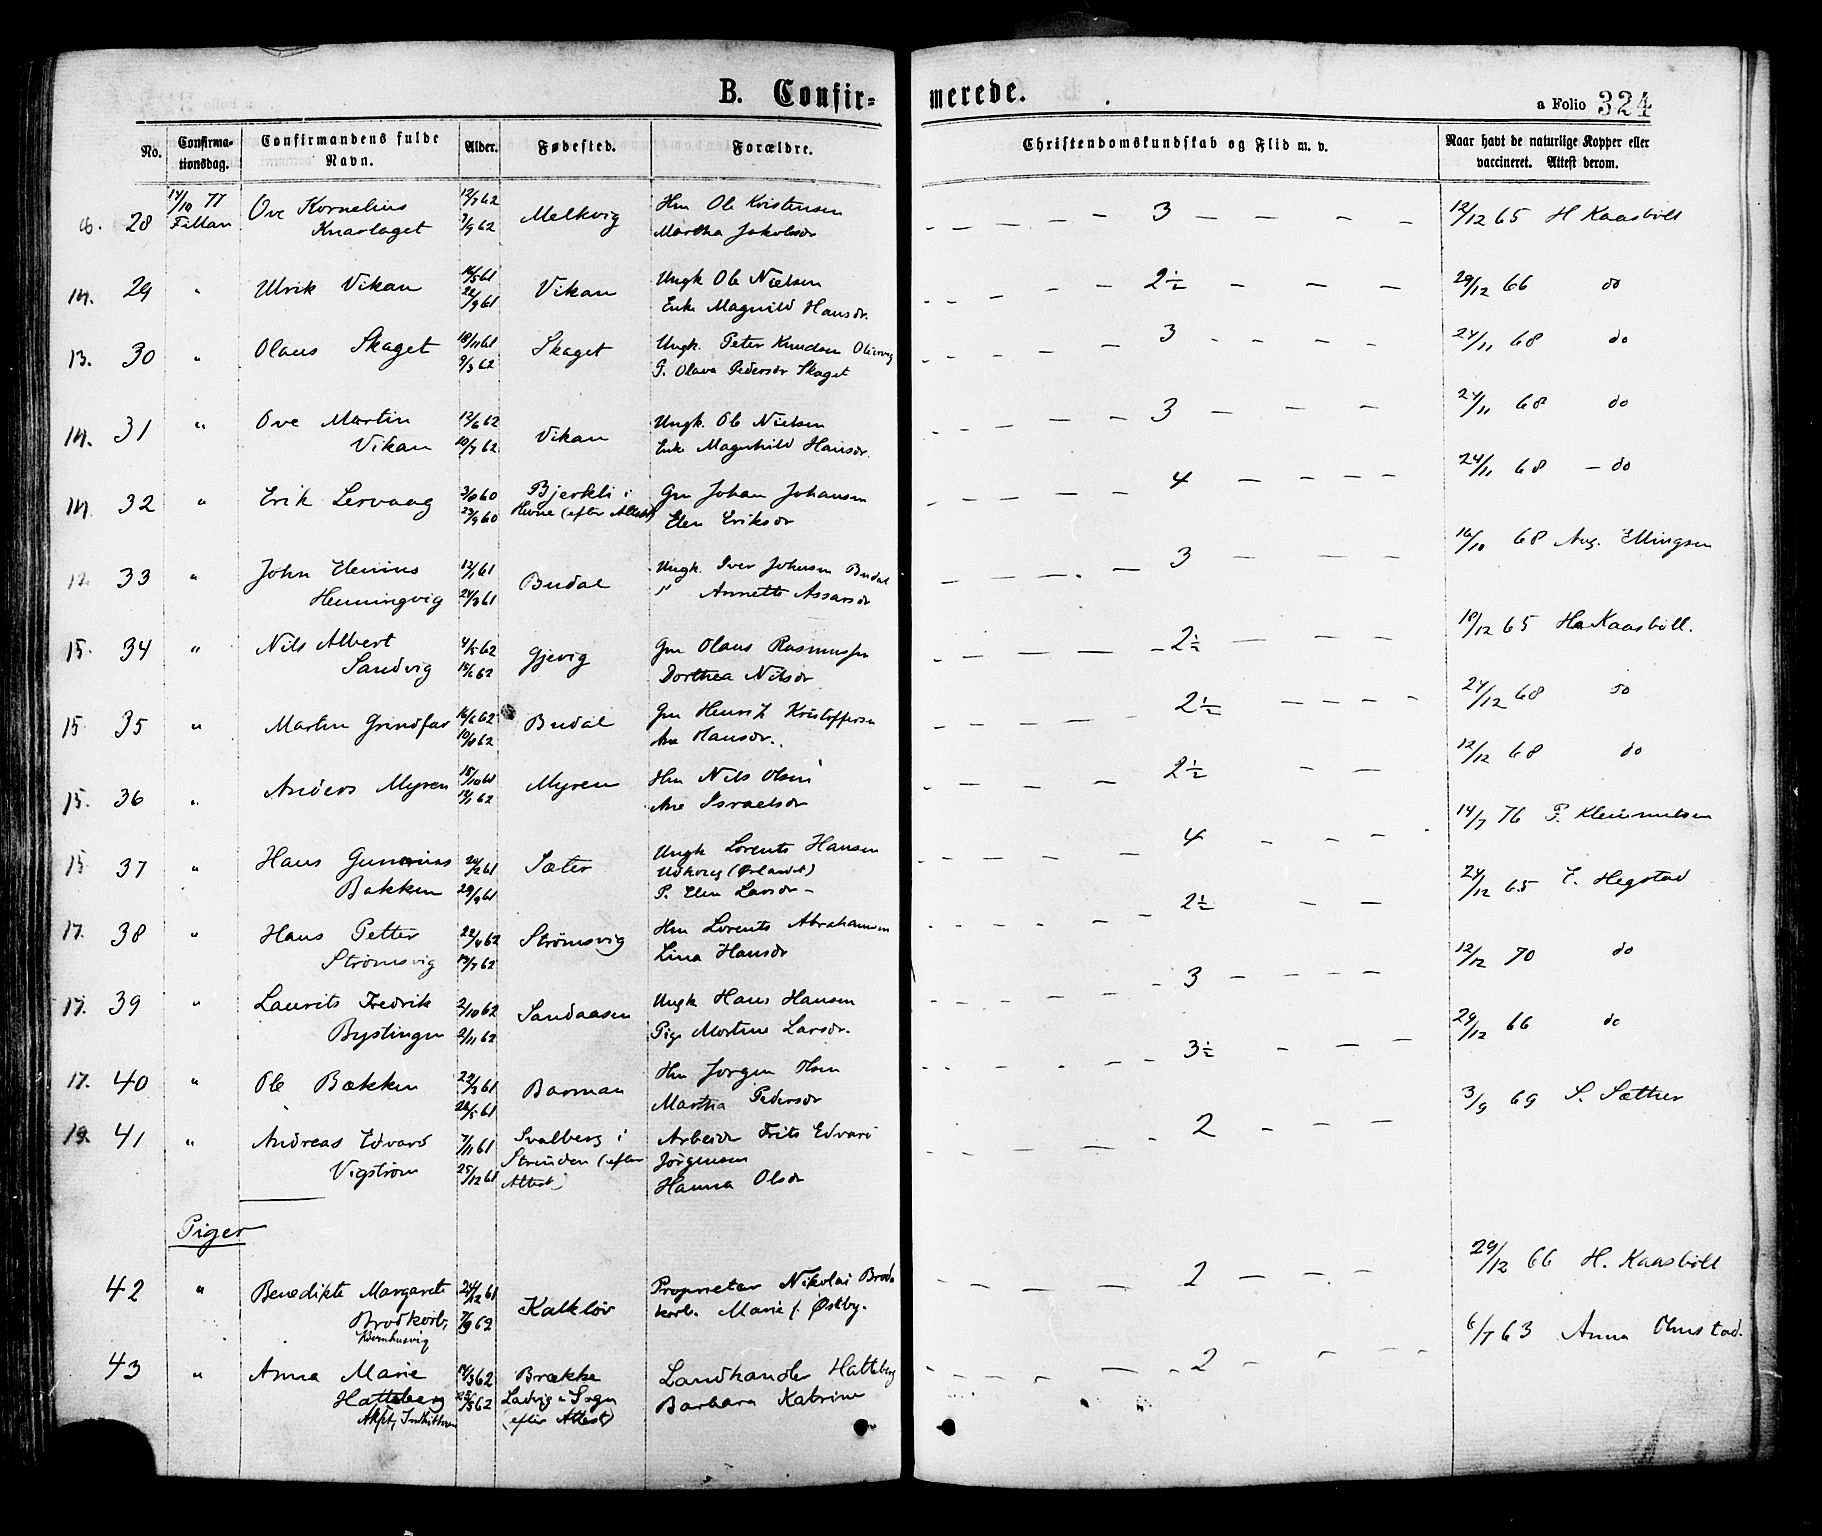 B. Confir- merede.
a Folio 324
No. Confirma-tionsdag. Confirmandens fulde Navn. Alder. Fødested. Forældre. Christendomskundskab og Flid m. v. Naar havt de naturlige Kopper eller vaccineret. Attest derom.
28 14/10 77 Ove Kornelius 12/7 62 Melkvig Hm Ole Kristensen 3 12/12 65 H Kaasbøll
Fillan Knarlaget 7/9 62 Martha Jakobsdr
14. 29 " Ulrik Vikan Vikan Ungk Ole Nielsen 2½ 29/12 66 do
22/9 61 Enke Magnild Hansdr.
13. 30 " Olaus Skaget 18/11 61 Skaget Ungk. Peter Knudsen 3 24/11 68 do
9/3 62 P. Olava Pedersdr Skaget
14. 31 " Ove Martin 12/6 62 Vikan Ungk. Ole Nielsen 3 24/11 68 do
Vikan 10/7 62 Enke Magnhild Hansdr.
14. 32 " Erik Lervaag Bjerkli i Gm Johan Johansen 4 24/11 68 – do
23/9 60 Hevne (efter Attest) Elen Eriksdr
12. 33 " John Elenius 12/1 61 Budal Ungk. Iver Johnsen Budal 3 16/10 68 Aug. Ellingsen
Henningvig 24/3 61 " Annette Assarsdr
15. 34 " Nils Albert 4/5 62 Gjevig Gm Olaus Rasmussen 2½ 18/12 65 H. Kaasbøll.
Sandvig 15/6 62 Dorthea Nilsdr
15. 35 " Martin Grindfar 16/6 62 Budal Gm Henrik Kristoffersen 2½ 24/12 68 do
10/8 62 Ane Hansdr.
15. 36 " Anders Myren 15/10 61 Myren Hm Nils Olsen 2½ 12/12 68 do
Ane Israelsdr
15 37 " Hans Gunerius Sæter Ungk Lorents Hansen 4 14/7 76 P. Klemmetsen
Bakken 29/9 61 Udhoug (Ørlandet)
P. Elen Larsdr –
17. 38 " Hans Petter 22/4 62 Strømsvig Hm Lorents Abrahamsen 2½ 24/12 65 E. Hegstad
Strømsvig 13/7 62 Lina Hansdr
17. 39 " Laurits Fredrik 2/10 62 Sandaasen Ungk Hans Hansen 3 12/12 70 do
Bystingen 2/11 62 Pige Martine Larsdr.
17. 40 " Ole Bækken Barman Hm Jørgen Olsen 3½ 29/12 66 do
26/5 61 Martha Pedersdr
19. 41 " Andreas Edvard 7/11 61 Svalberg i Arbeider Frits Edvard 2 3/9 69 S. Sæther
Vigstrøm 25/12 61 Strinden (efter Jørgensen
Attest) Hanna Olsdr
Piger
42 " Benedikte Margarete 24/12 61 Kalkløv Proprietær Nikolai Brod 2 29/12 66 H. Kaasbøll
Brodkorb, korb. Marie f. Østby.
Kjernhusvig
43 " Anna Marie 14/3 62 Brække Landhandler Hatteberg 2 6/7 63 Anna Olmstad.
Hatteberg Ladvig i Sogn Barbara Katrine
(efter Attest)